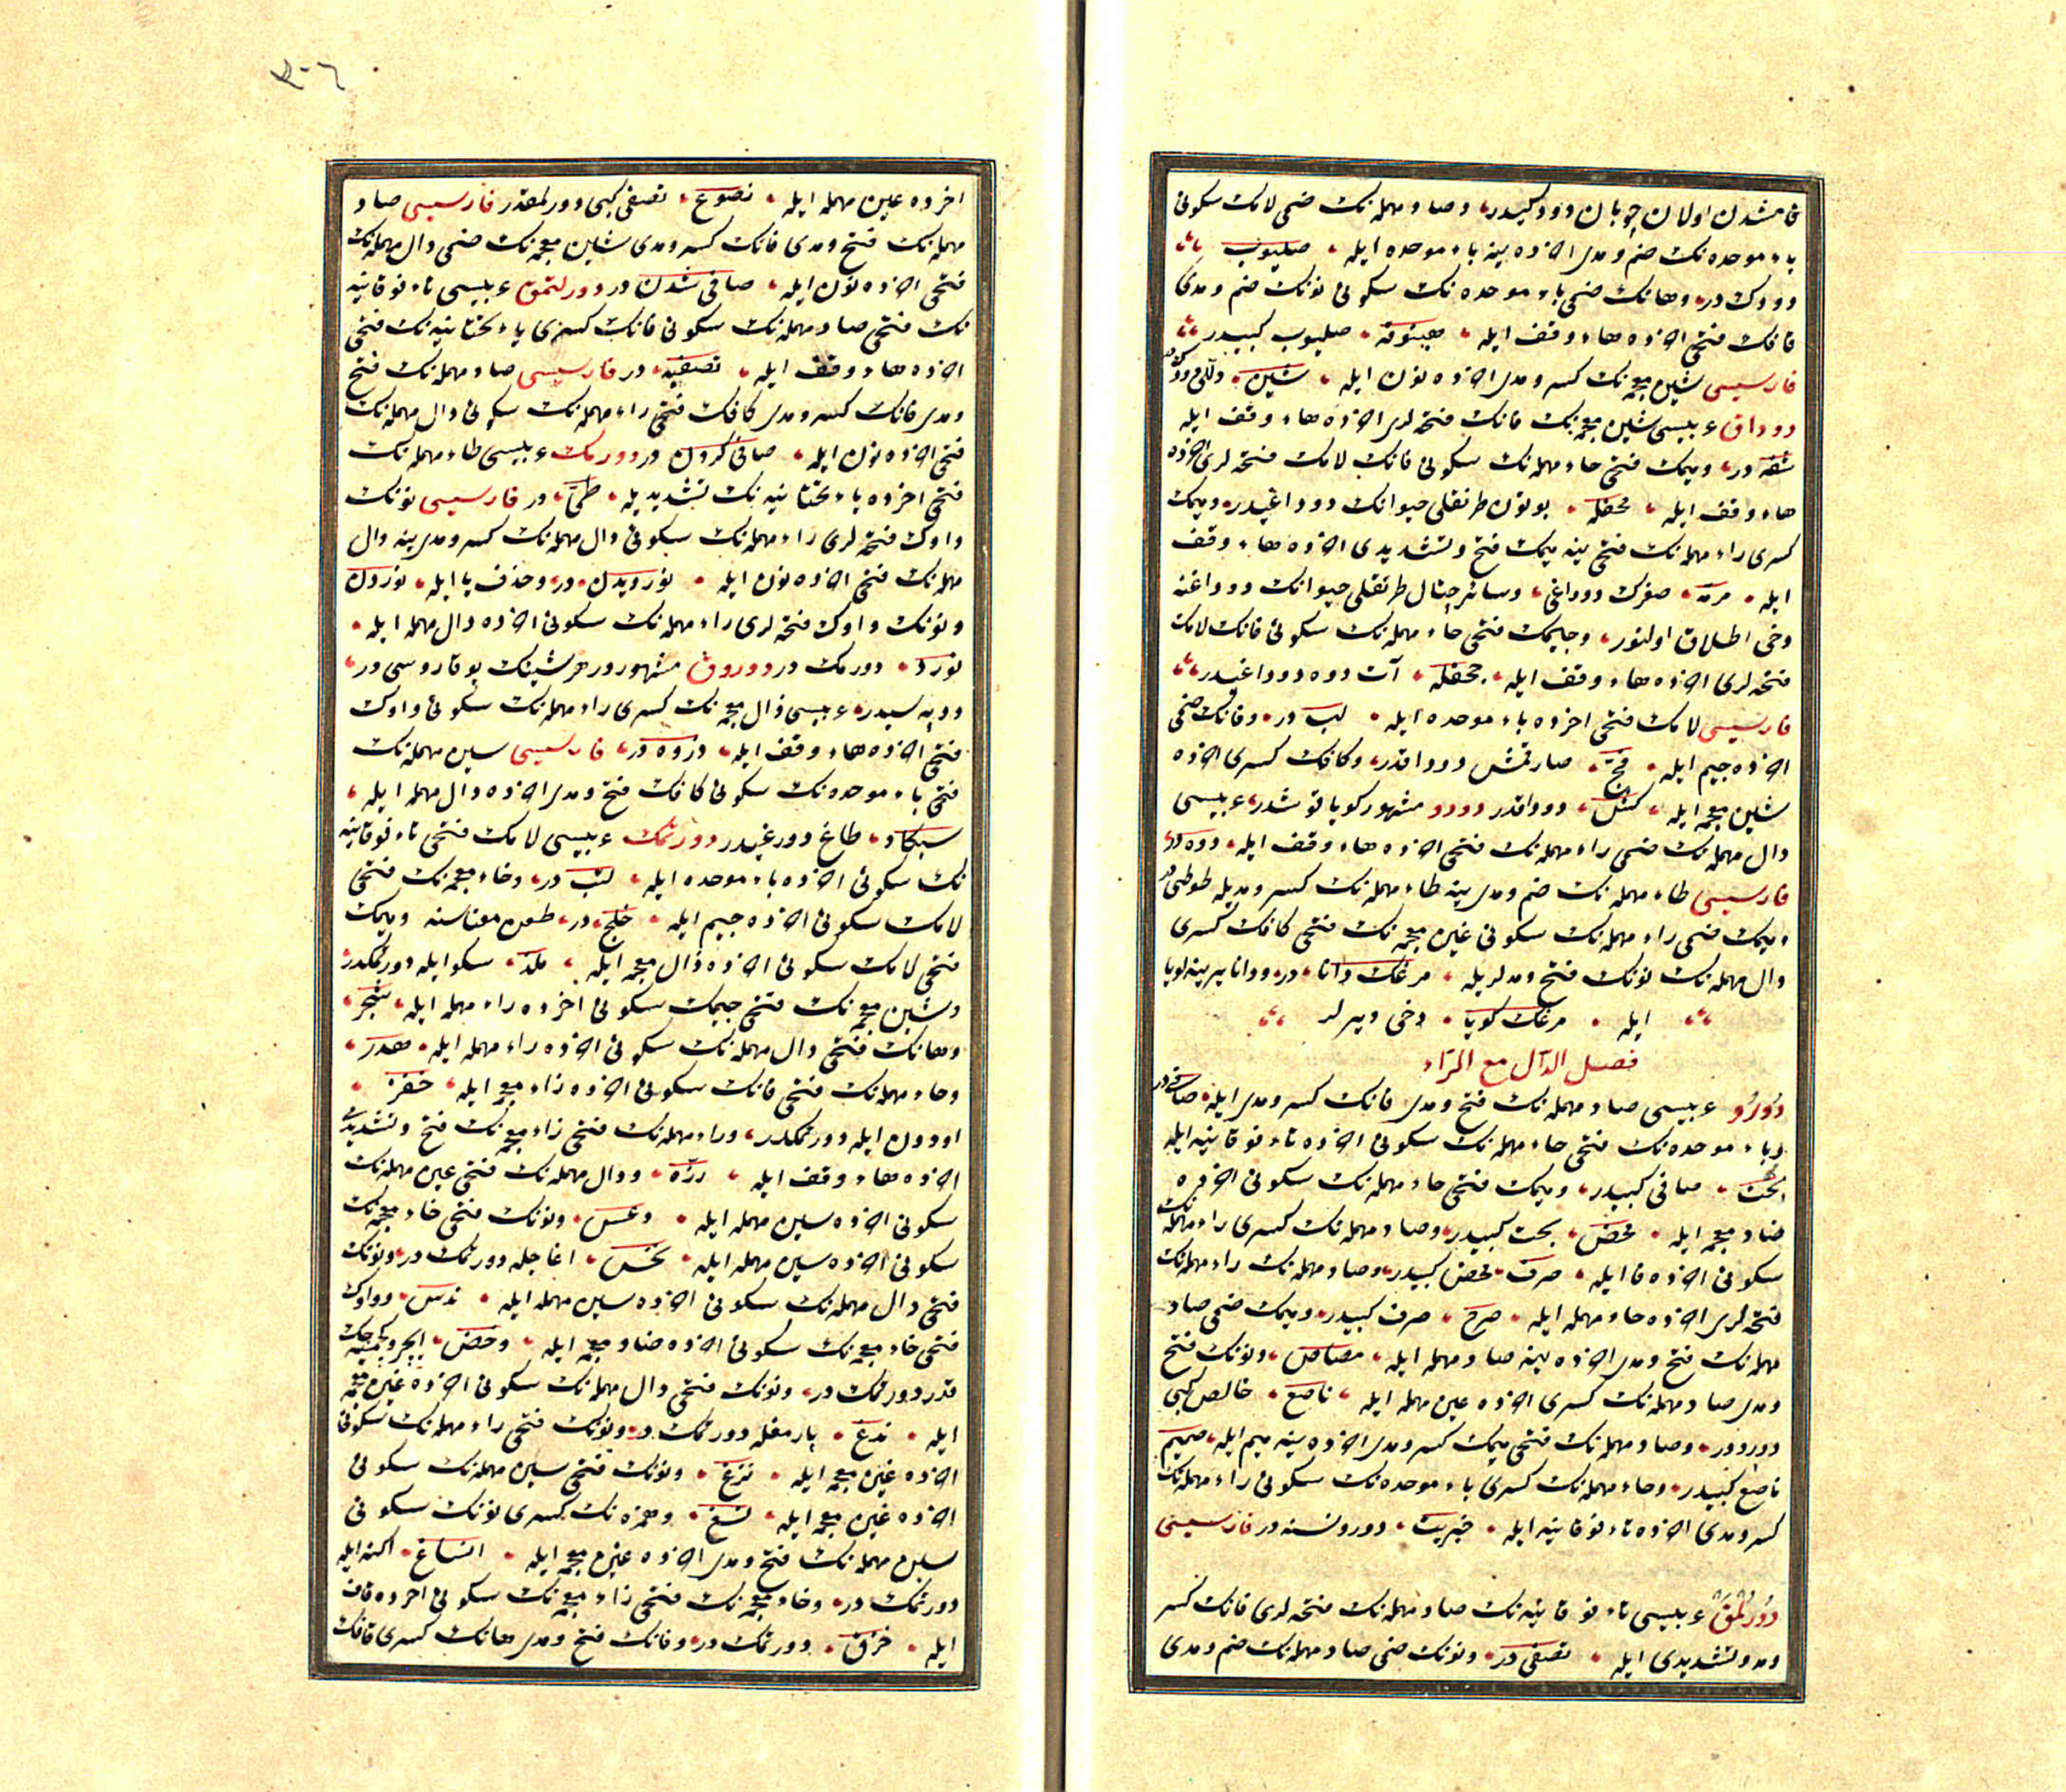 قامشدن اولان چوبان دودكیدر وصاد مهمله‌نك ضمی لامك سكونی
باء موحده‌نك ضم ومدی اخرده ینه باء موحده ایله صلبوب
دودك در وهانك ضمی باء موحده‌نك سكونی نونك ضم ومدی
قافك فتحی اخرده هاء وقف ایله هبنوقه صلبوب كبیدر
فارسیسی شین معجمه‌نك كسر ومدی اخرده نون ایله شین
دوداق عربیسی شین معجمه‌نك فانك فتحه‌لری اخرده هاء وقف ایله
شفه در ومیمك فتحی حاء مهمله‌نك سكونی فانك لامك فتحه‌لری اخرده
هاء وقف ایله محفله بوتون طرنقلی حیوانك دوداغیدر ومیمك
كسری راء مهمله‌نك فتحی ینه میمك فتح وتشدیدی اخرده هاء وقف
ایله مرمه صغرك دوداغی وسائر چتال طرنقلی حیوانك دوداغنه
دخی اطلاق اولنور وجیمك فتحی حاء مهمله‌نك سكونی فانك لامك
فتحه‌لری اخرده هاء وقف ایله جحفله آت دوه دوداغیدر
فارسیسی لامك فتحی اخرده باء موحده ایله لب در وفانك ضمی
اخرده جیم ایله فج صارقمش دوداقدر وكافك كسری اخرده
شین معجمه ایله كش دوداقدر دودو مشهور كویا قوشدر عربیسی
دال مهمله‌نك ضمی راء مهمله‌نك فتحی اخرده هاء وقف ایله
فارسیسی طاء مهمله‌نك ضم ومدی ینه طاء مهمله‌نك كسر ومدیله طوطی در
ومیمك ضمی راء مهمله‌نك سكونی غین معجمه‌نك فتحی كافك كسری
دال مهمله‌نك نونك فتح ومدلریله مرغك دانا در ودانا یرینه كویا
ایله مرغك كویا دخی دیرلر
فصل الدال مع الراء
دورو عربیسی صاد مهمله‌نك فتح ومدی فانك كسر ومدی ایله صافی در
وباء موحده‌نك فتحی حاء مهمله‌نك سكونی اخرده تاء فوقانیه ایله
بحت صافی كبیدر ومیمك فتحی حاء مهمله‌نك سكونی اخرده
ضاد معجمه ایله محض بحت كبیدر وصاد مهمله‌نك كسری راء مهمله‌نك
سكونی اخرده فا ایله صرف محض كبیدر وصاد مهمله‌نك راء مهمله‌نك
فتحه‌لری اخرده حاء مهمله ایله صرح صرف كبیدر ومیمك ضمی صاد
مهمله‌نك فتح ومدی اخرده ینه صاد مهمله ایله مصاص ونونك فتح
ومدی صاد مهمله‌نك كسری اخرده عین مهمله ایله ناصع خالص كبی
دورودر وصاد مهمله‌نك فتحی میمك كسر ومدی اخرده ینه میم ایله صمیم
ناصع كبیدر وحاء مهمله‌نك كسری باء موحده‌نك سكونی راء مهمله‌نك
كسر ومدی اخرده تاء فوقانیه ایله حبریت دورو نسنه در فارسیسی
دورلمق عربیسی تاء فوقانیه‌نك صاد مهمله‌نك فتحه‌لری فانك كسر
ومد وتشدیدی ایله تصفی در ونونك ضمی صاد مهمله‌نك ضم ومدی
٣٠٦
اخرده عین مهمله ایله نصوع تصفی كبی دورلمقدر فارسیسی صاد
مهمله‌نك فتح ومدی فانك كسر ومدی شین معجمه‌نك ضمی دال مهمله‌نك
فتحی اخرده نون ایله صافی شدن در دورلتمق عربیسی تاء فوقانیه
نك فتحی صاد مهمله‌نك سكونی فانك كسری یاء تحتانیه‌نك فتحی
اخرده هاء وقف ایله تصفیه در فارسیسی صاد مهمله‌نك فتح
ومدی فانك كسر ومدی كافك فتحی راء مهمله‌نك سكونی دال مهمله‌نك
فتحی اخرده نون ایله صافی كردن در دورمك عربیسی طاء مهمله‌نك
فتحی اخرده یاء تحتانیه‌نك تشدیدیله طی در فارسیسی نونك
واوك فتحه‌لری راء مهمله‌نك سكونی دال مهمله‌نك كسر ومدی ینه دال
مهمله‌نك فتحی اخرده نون ایله نوردیدن در وحذف یا ایله نوردن
ونونك واوك فتحه‌لری راء مهمله‌نك سكونی اخرده دال مهمله ایله
نورد دورمك در دوروق مشهوردر هر شینك یوقاروسی در
ودپه سیدر عربیسی ذال معجمه‌نك كسری راء مهمله‌نك سكونی واوك
فتحی اخرده هاء وقف ایله ذروه در فارسیسی سین مهمله‌نك
فتحی باء موحده‌نك سكونی كافك فتح ومدی اخرده دال مهمله ایله
سبكاد طاغ دورغیدر دورتمك عربیسی لامك فتحی تاء فوقانیه
نك سكونی اخرده باء موحده ایله لتب در وخاء معجمه‌نك فتحی
لامك سكونی اخرده جیم ایله خلج در طعن معناسنه ومیمك
فتحی لامك سكونی اخرده ذال معجمه ایله ملذ سكو ایله دورتمكدر
وشین معجمه‌نك فتحی جیمك سكونی اخرده راء مهمله ایله شجر
وهانك فتحی دال مهمله‌نك سكونی اخرده راء مهمله ایله هدر
وحاء مهمله‌نك فتحی فانك سكونی اخرده زاء معجمه ایله حفز
اودون ایله دورتمكدر وراء مهمله‌نك فتحی زاء معجمه‌نك فتح وتشدیدی
اخرده هاء وقف ایله رزه ودال مهمله‌نك فتحی عین مهمله‌نك
سكونی اخرده سین مهمله ایله دعس ونونك فتحی خاء معجمه‌نك
سكونی اخرده سین مهمله ایله نخس اغاجله دورتمك در ونونك
فتحی دال مهمله‌نك سكونی اخرده سین مهمله ایله ندس وواوك
فتحی خاء معجمه‌نك سكونی اخرده ضاد معجمه ایله وخض
قدر دورتمك در ونونك فتحی دال مهمله‌نك سكونی اخرده غین معجمه
ایله ندغ پارمغله دورتمك در ونونك فتحی راء مهمله‌نك سكونی
اخرده غین معجمه ایله نزغ ونونك فتحی سین مهمله‌نك سكونی
اخرده غین معجمه ایله نسغ وهمزه‌نك كسری نونك سكونی
سین مهمله‌نك فتح ومدی اخرده غین معجمه ایله انساغ اكنه ایله
دورتمك در وخاء معجمه‌نك فتحی زاء معجمه‌نك سكونی اخرده قاف
ایله خزق دورتمك در وفانك فتح ومدی هانك كسری قافك